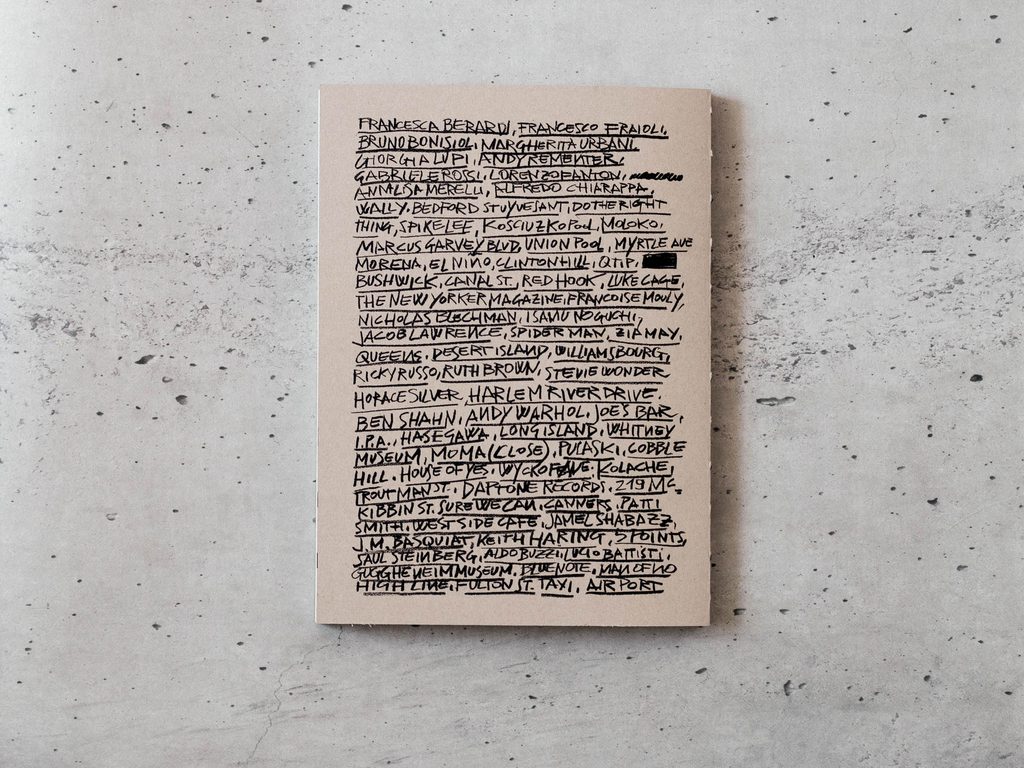 FRANCESCA BERARDI, FRANCESCO FRAIOLI,
BRUNO BONISIOL, MARGHERITA URBANI,
GIORGIA LUPI, ANDY REMENTER,
GABRIELE ROSSI, LORENZO FANTON,
ANNALISA MERELLI, ALFREDO CHIARAPPA,
WALLY, BEDFORD STUYVESANT, DO THE RIGHT
THING, SPIKE LEE, KOSCIUZKO POOL, MOLOKO,
MARCUS GARVEY BLVD, UNION POOL, MYRTLE AVE
MORENA, EL NIÑO, CLINTON HILL, QTIP,
BUSHWICK, CANAL ST, RED HOOK, LUKE CAGE,
THE NEW YORKER MAGAZINE, FRANCOISE MOULY,
NICHOLAS BLECHMAN, ISAMU NOGUCHI,
JACOB LAWRENCE, SPIDERMAN, ZIA MAY,
QUEENS, DESERT ISLAND, WILLIAMSBOURG,
RICKY RUSSO, RUTH BROWN, STEVIE WONDER
HORACE SILVER, HARLEM RIVER DRIVE,
BEN SHAHN, ANDY WARHOL, JOE'S BAR,
I.P.A., HASEGAWA, LONG ISLAND, WHITNEY
MUSEUM, MOMA (CLOSE), PULASKI, COBBLE
HILL, HOUSE OF YES, WYCKOFF AVE, KOLACHE,
TROUTMAN ST., DAPTONE RECORDS, 219 MC
KIBBIN ST, SURE WE CAN, CANNERS, PATTI
SMITH, WEST SIDE CAFE, JAMEL SHABAZZ,
J.M. BASQUIAT, KEITH HARING, 5 POINTS,
SAUL STEINBERG, ALDO BUZZI, LUCIO BATTISTI,
GUGGHENEIM MUSEUM, BLUE NOTE,
HIGH LINE, FULTON ST. TAXI, AIRPORT